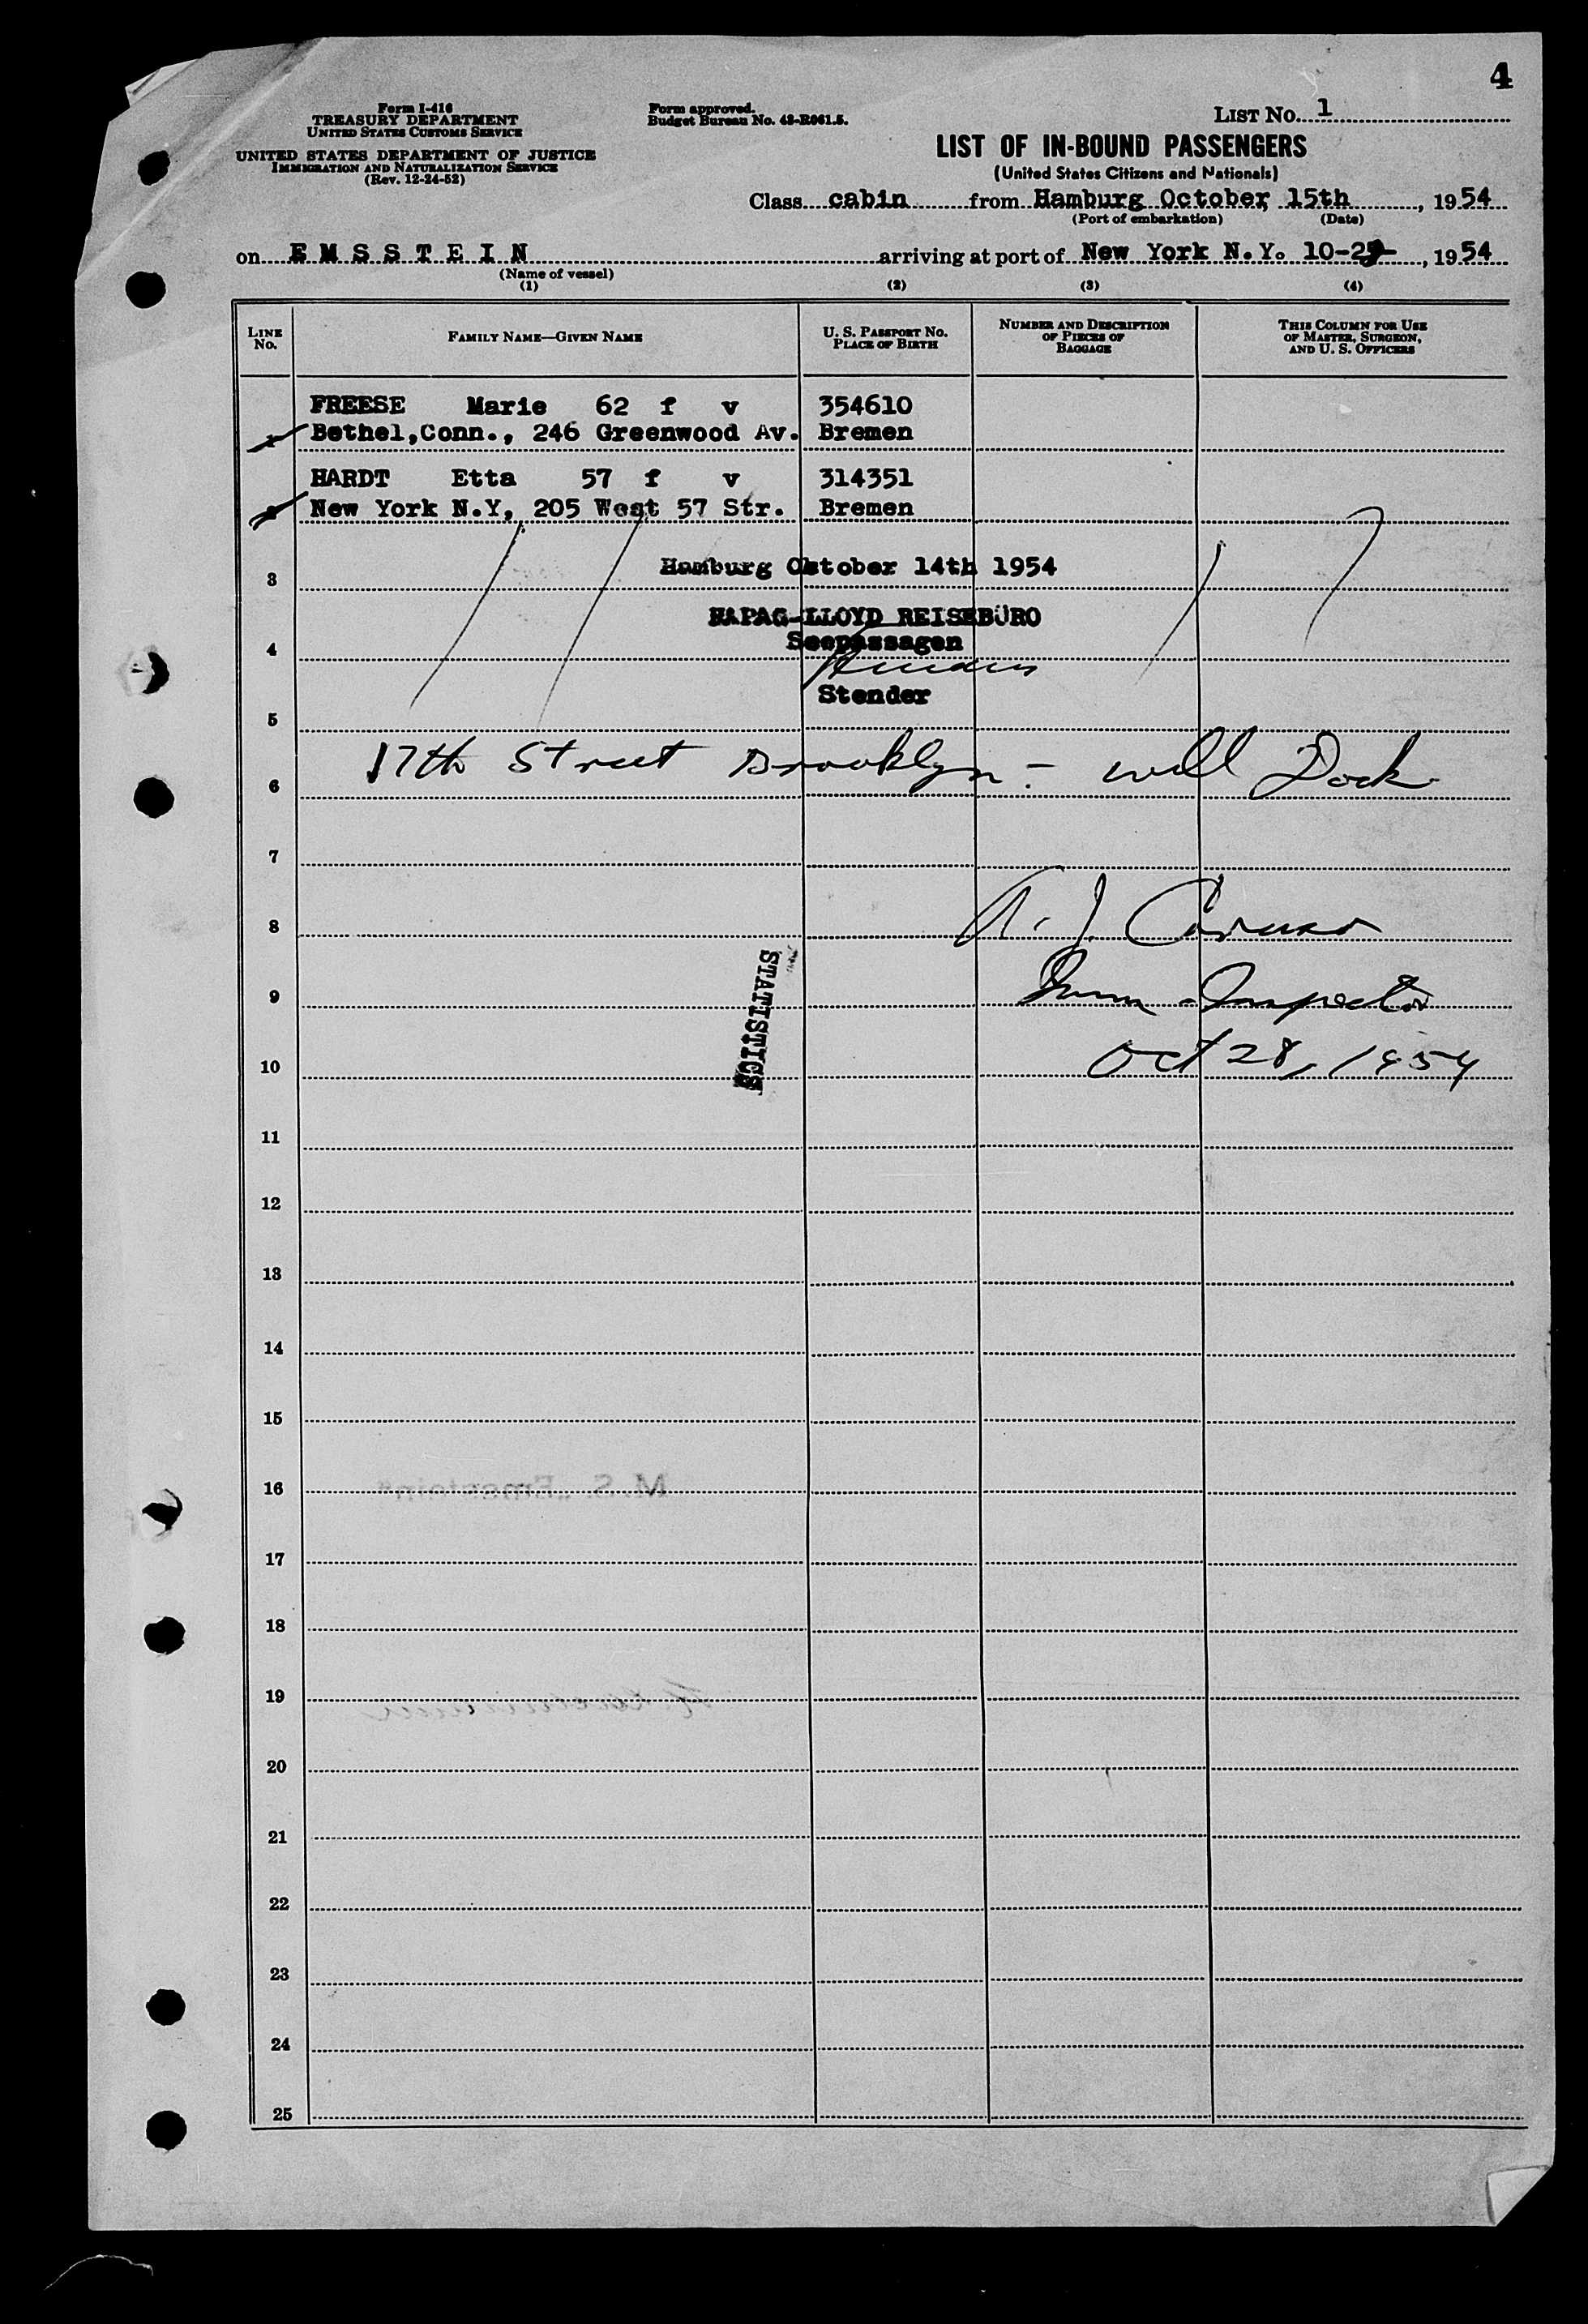 4
Form I-416
TREASURY DEPARTMENT
UNITED STATES CUSTOMS SERVICE
UNITED STATES DEPARTMENT OF JUSTICE
IMMIGRATION AND NATURALIZATION SERVICE
(Rev. 12-24-52)
Form approved.
Budget Bureau No. 43-R061.5.
LIST NO. 1
LIST OF IN-BOUND PASSENGERS
(United States Citizens and Nationals)
Class cabin from Hamburg October, 15th, 1954
(Port of embarkation) (Date)
on E M S S T E I N arriving at port of New York N.Y. 10-29, 1954
(Name of vessel)
(1) (2) (3) (4)
LINE NO. FAMILY NAME—GIVEN NAME U. S. PASSPORT NO. PLACE OF BIRTH NUMBER AND DESCRIPTION OF PIECES OF BAGGAGE THIS COLUMN FOR USE OF MASTER, SURGEON, AND U. S. OFFICERS
FREESE Marie 62 f v 354610
1 Bethel,Conn., 246 Greenwood Av. Bremen
HARDT Etta 57 f v 314351
New York N.Y, 205 West 57 Str. Bremen
3 Hamburg Oktober 14th 1954
HAPAG-LLOYD REISEBÜRO
4 Seepassagen
Stender
5
6 17th Street Brooklyn - will Dock
7
8 A. J. Caruso
9 Imm. Inspector
STATISTICS
10 Oct 28, 1954
11
12
13
14
15
16 M.S. „Emsstein"
17
18
19
20
21
22
23
24
25